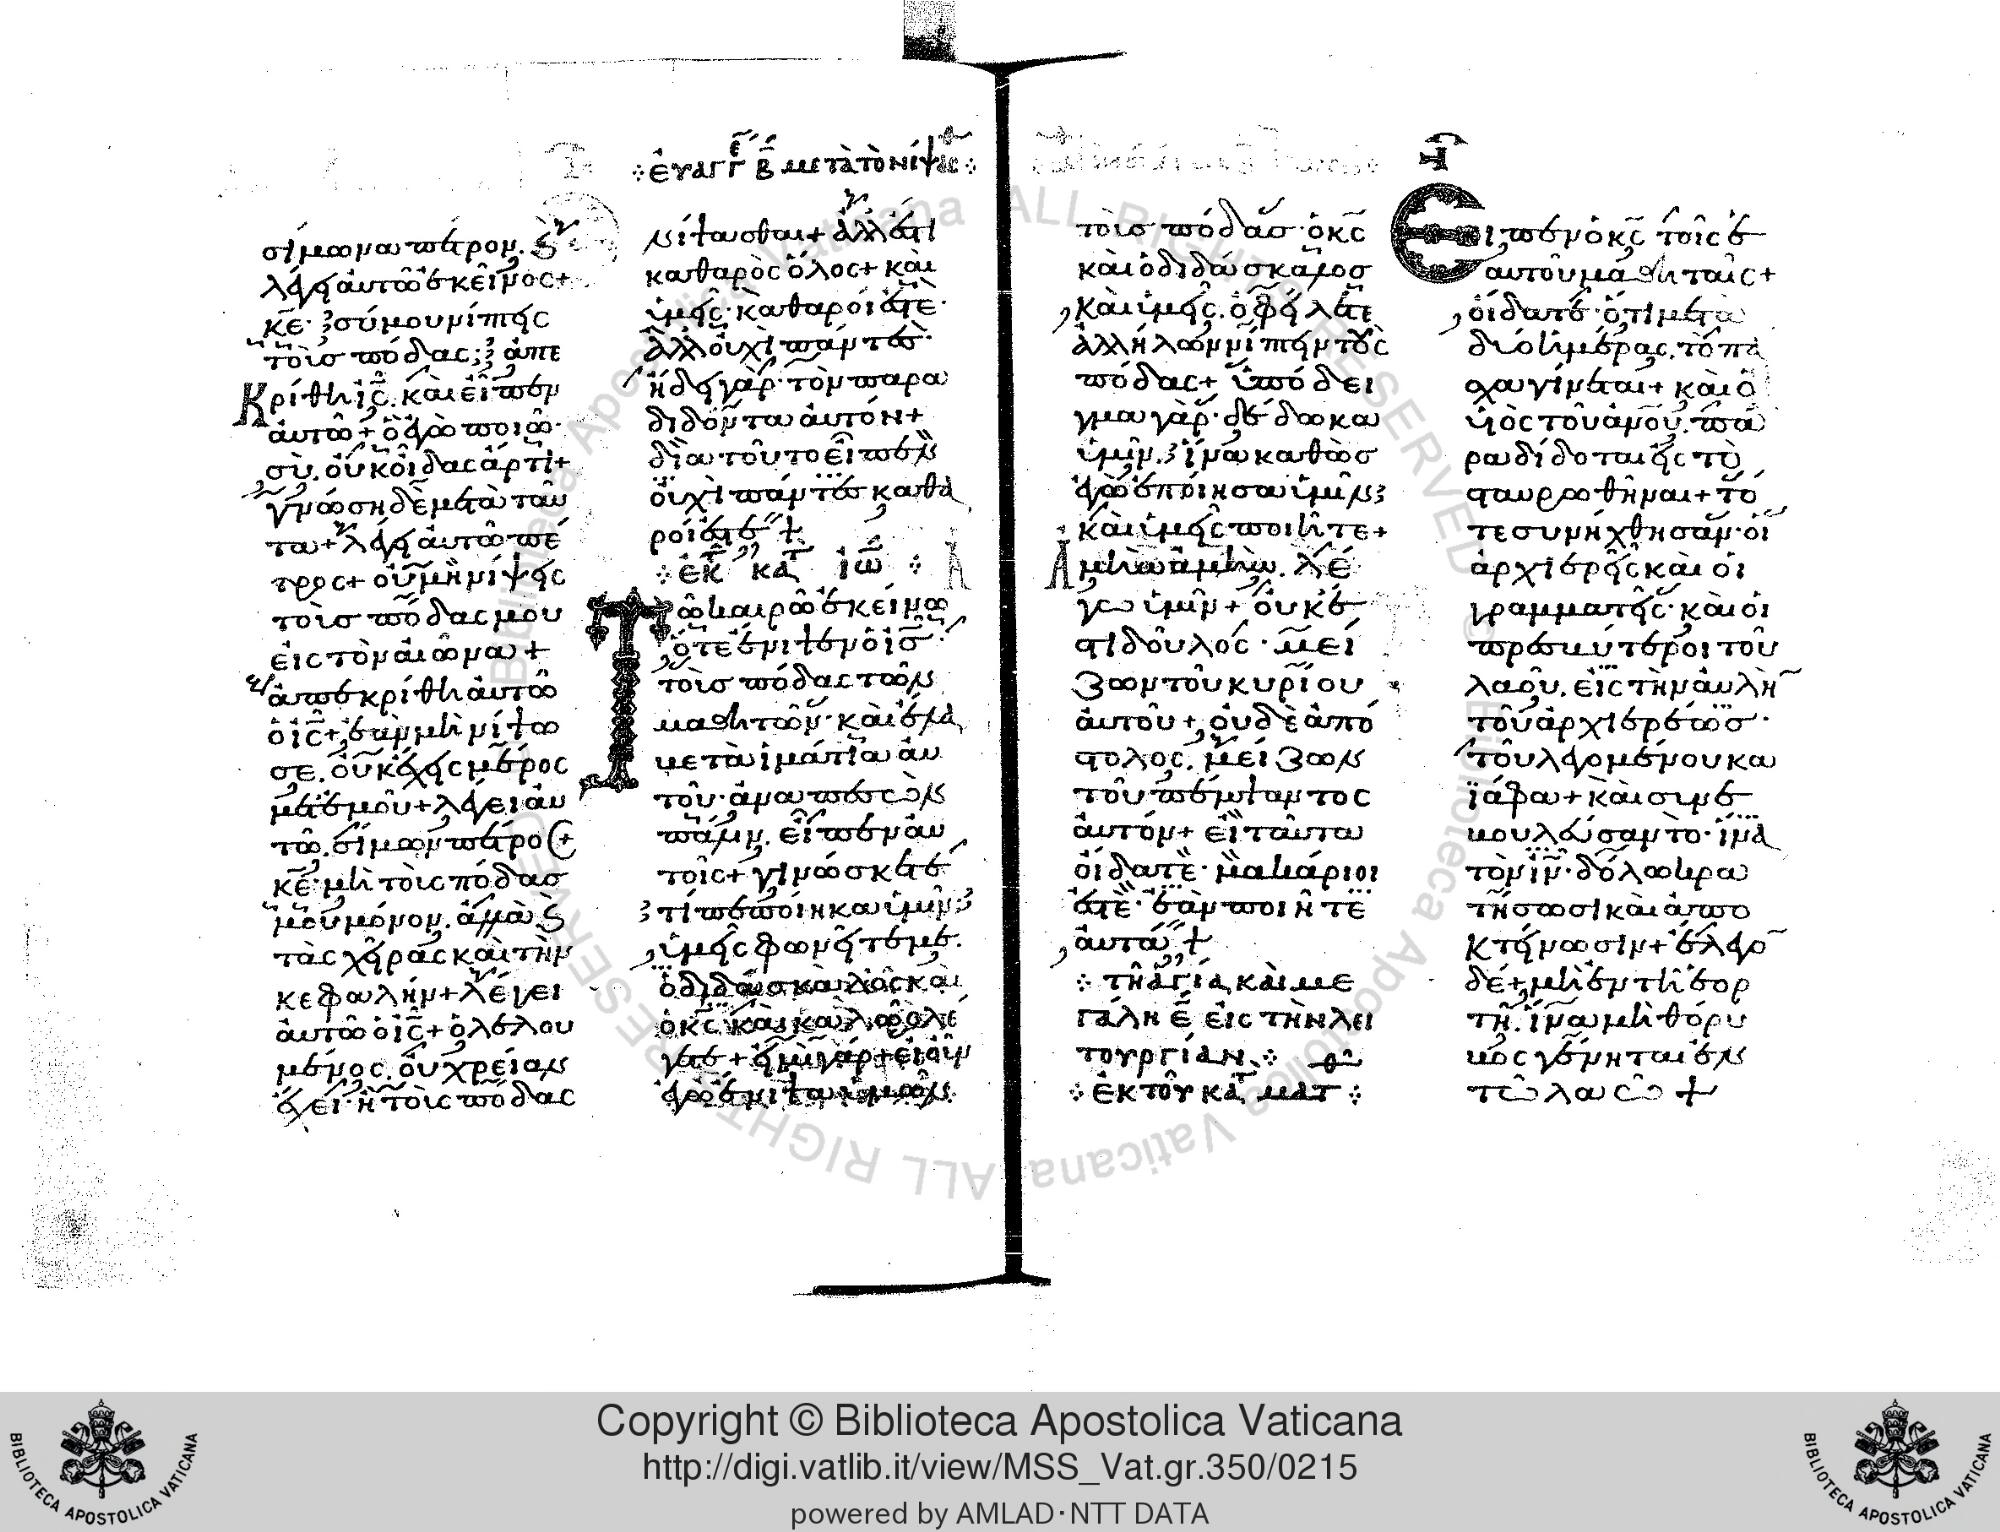 σίμωνα πέτρον. ϗ
λέγει αὐτῶ ἐκεῖνος+
κε̄· σύ μου νίπτεις
τοὺς πόδας; ἀπε
κρίθη ις̄. καὶ εἶπεν
αὐτῶ+ ὃ ἐγὼ ποιῶ·
σὺ. οὐκ οἶδας ἄρτι+
γνώση δὲ μετὰ ταῦ
τα+ λέγει αὐτῶ πέ
τρος+ οὐ μὴ νίψεις
τοὺς πόδας μου
εἰς τὸν αἰῶνα+
ἀπεκρίθη αὐτῶ
ὁ ις̄+ ἐὰν μὴ νίψω
σε. οὐκ ἔχεις μέρος
μετ ἐμοῦ+ λέγει αὐ
τῶ. σίμων πέτρος+
κε̄· μὴ τοὺς πόδας
μου μόνον. ἀλλὰ ϗ
τὰς χεῖρας καὶ τὴν
κεφαλήν+ λέγει
αὐτῶ ὁ ις̄+ ὁ λελου
μένος. οὐ χρείαν
ἔχει· ἢ τοὺς πόδας
εὐαγγε β̄ μετὰ τὸ νίψασ
νίψασθαι+ ἀλλ ἔστι
καθαρὸς ὅλος+ καὶ
ὑμεῖς· καθαροί ἐστε·
ἀλλ οὐχὶ πάντες·
ἤδει γὰρ· τὸν παρα
διδόντα αὐτόν+
διὰ τοῦτο εἶπεν
οὐχὶ πάντες καθα
ροί ἐστε+
ἐκ κατ ἰω
Τῶ καιρῶ ἐκείνω
ὅτε ἔνιψεν ὁ ις̄
τοὺς πόδας τῶν
μαθητῶν· καὶ ἔλα
βε τὰ ἱμάτια αὐ
τοῦ· ἀναπεσὼν
πάλιν. εἶπεν αὐ
τοῖς+ γινώσκετε
τί πεποίηκα ὑμῖν;
ὑμεῖς φωνεῖτέ με.
ὁ διδάσκαλος καὶ
ὁ κς̄ καὶ καλῶς λέ
γετε+ εἰμὶ γάρ+ εἰ οὖν
ἐγὼ ἔνιψα ὑμῶν
τοὺς πόδας· ὁ κς̄
καὶ ὁ διδάσκαλος
καὶ ὑμεῖς. ὀφείλετε
ἀλλήλων νίπτειν τοὺς
πόδας+ ὑπόδει
γμα γὰρ· δέδωκα
ὑμῖν. ἵνα καθὼς
ἐγὼ ἐποίησα ὑμῖν
καὶ ὑμεῖς ποιῆτε+
Ἀμὴν ἀμὴν. λέ
γω ὑμῖν+ οὐκ ἔ
στι δοῦλος· μεί
ζων τοῦ κυρίου
αὐτοῦ+ οὐδὲ ἀπό
στολος. μείζων
τοῦ πέμψαντος
αὐτόν+ εἰ ταῦτα
οἴδατε· μακάριοι
ἐστε· ἐὰν ποιῆτε
αὐτά+
τῆ ἁγία καὶ με
γάλη ε̄ εἰς τὴν λει
τουργίαν
ἐκ τοῦ κατ ματ
Εἶπεν ὁ κς̄ τοῖς ἑ
αυτοῦ μαθηταῖς+
οἴδατε· ὅτι μετὰ
δύο ἡμέρας. τὸ πά
σχα γίνεται+ καὶ ὁ
υἱὸς τοῦ ἀνου. πα
ραδίδοται εἰς τὸ
σταυρωθῆναι+ τό
τε συνήχθησαν· οἱ
ἀρχιερεῖς καὶ οἱ
γραμματεῖς· καὶ οἱ
πρεσβύτεροι τοῦ
λαοῦ. εἰς τὴν αὐλὴ
τοῦ ἀρχιερέως·
τοῦ λεγομένου κα
ϊάφα+ καὶ συνε
βουλεύσαντο· ἵνα
τὸν ιν̄· δόλω κρα
τήσωσι καὶ ἀπο
κτείνωσιν+ ἔλεγο
δέ+ μὴ ἐν τῆ ἑορ
τῆ. ἵνα μὴ θόρυ
βος γένηται ἐν
τῶ λαῶ+
Copyright © Biblioteca Apostolica Vaticana
http://digi.vatlib.it/view/MSS_Vat.gr.350/0215
powered by AMLAD·NTT DATA
BIBLIOTECA APOSTOLICA VATICANA
BIBLIOTECA APOSTOLICA VATICANA